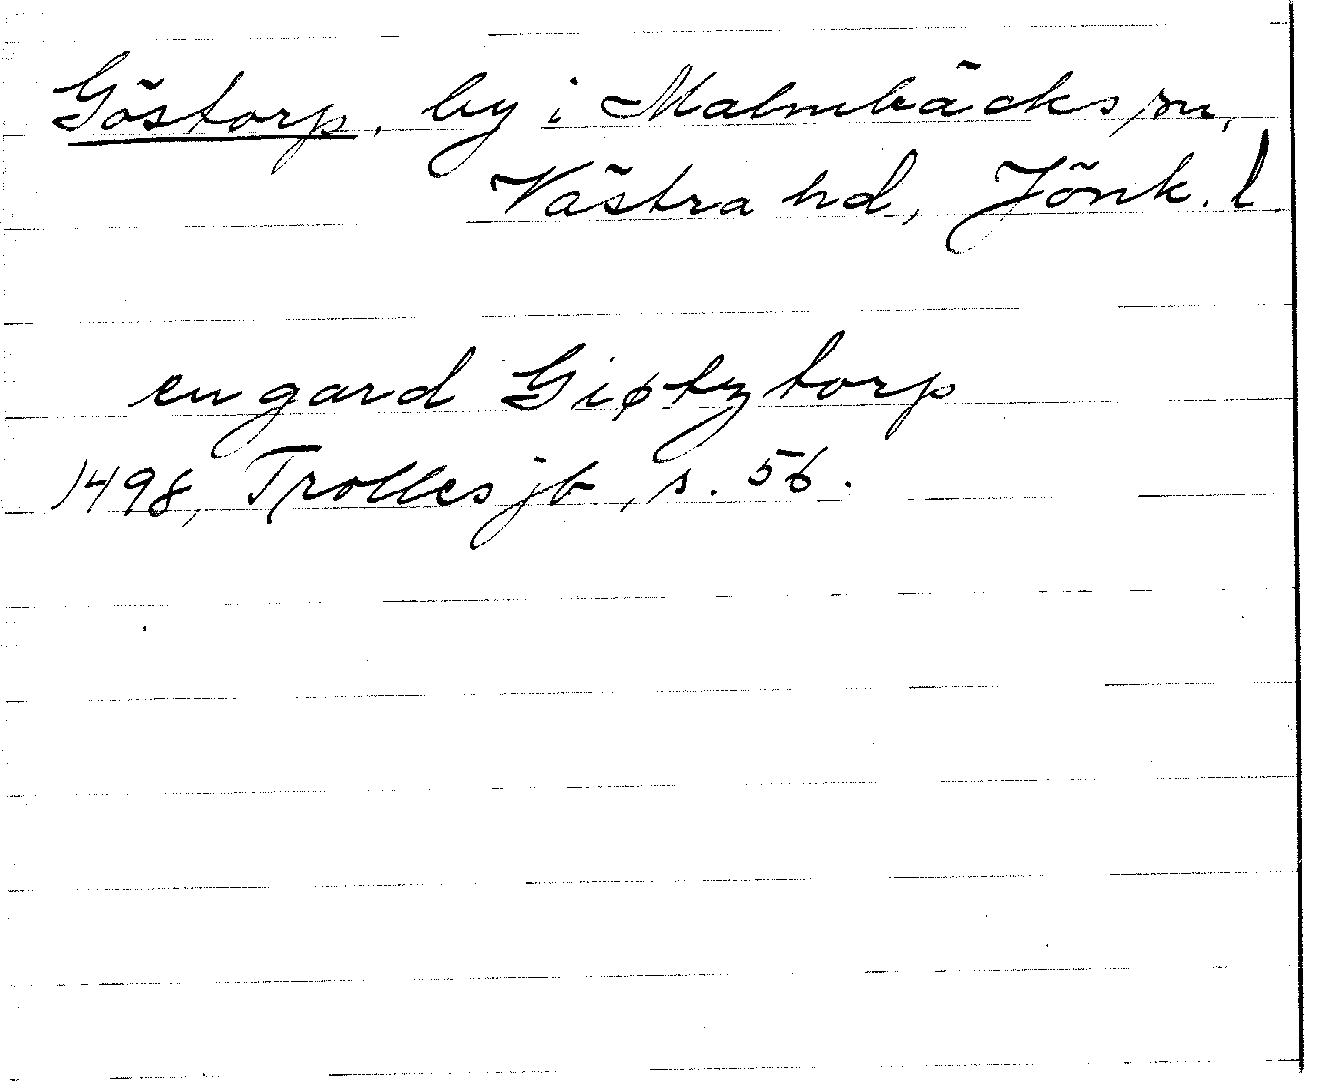 Göstorp, by i Malmbäcks sn,
Västra hd, Jönk. l.
en gard Giøtztorp
1498, Trolles jb, s. 56.